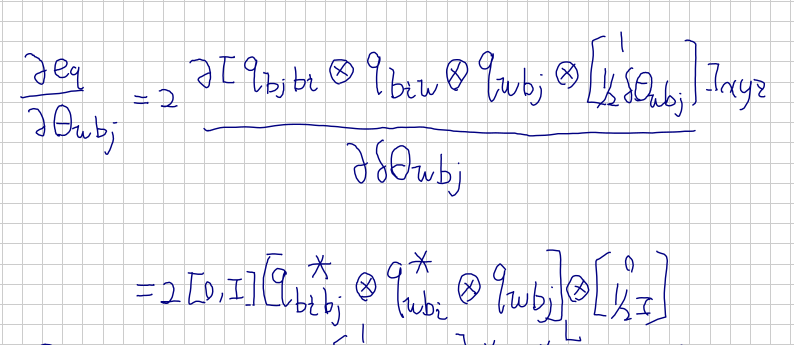 ∂e_q / ∂θ_{wbj} = 2 ∂[q_{bjbi} ⊗ q_{biw} ⊗ q_{wbj} ⊗ [1; 1/2 δθ_{wbj}]]_{xyz} / ∂δθ_{wbj}
= 2[0, I][q*_{bibj} ⊗ q*_{wbi} ⊗ q_{wbj}]_L ⊗ [0; 1/2 I]